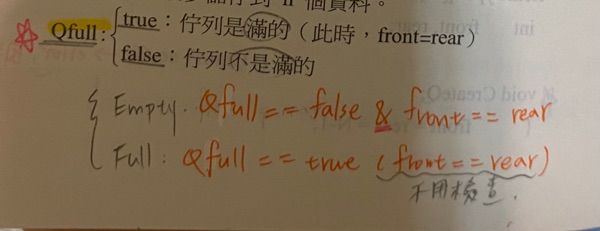 個資料。
Qfull: true：佇列是滿的（此時，front=rear）
false：佇列不是滿的
Empty. Qfull == false & front == rear
Full: Qfull == true (front == rear)
不用檢查.